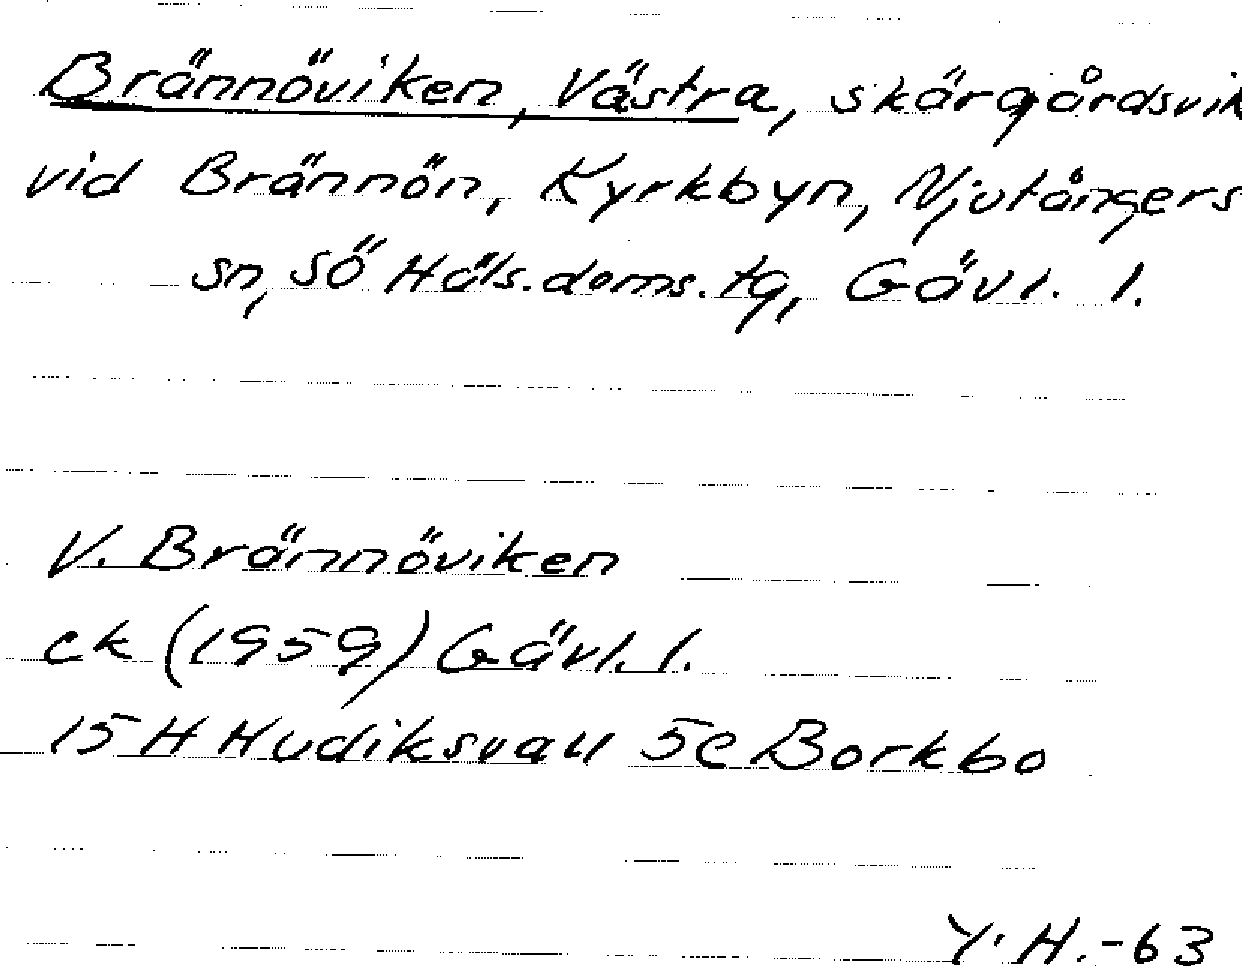 Brännöviken, Västra, skärgårdsvik
vid Brännön, Kyrkbyn, Njutångers
sn, SÖ Häls. doms. tg, Gävl. l.
V. Brännöviken
ek (1959) Gävl. l.
15 H Hudiksvall 5c Borkbo
Y. H. -63